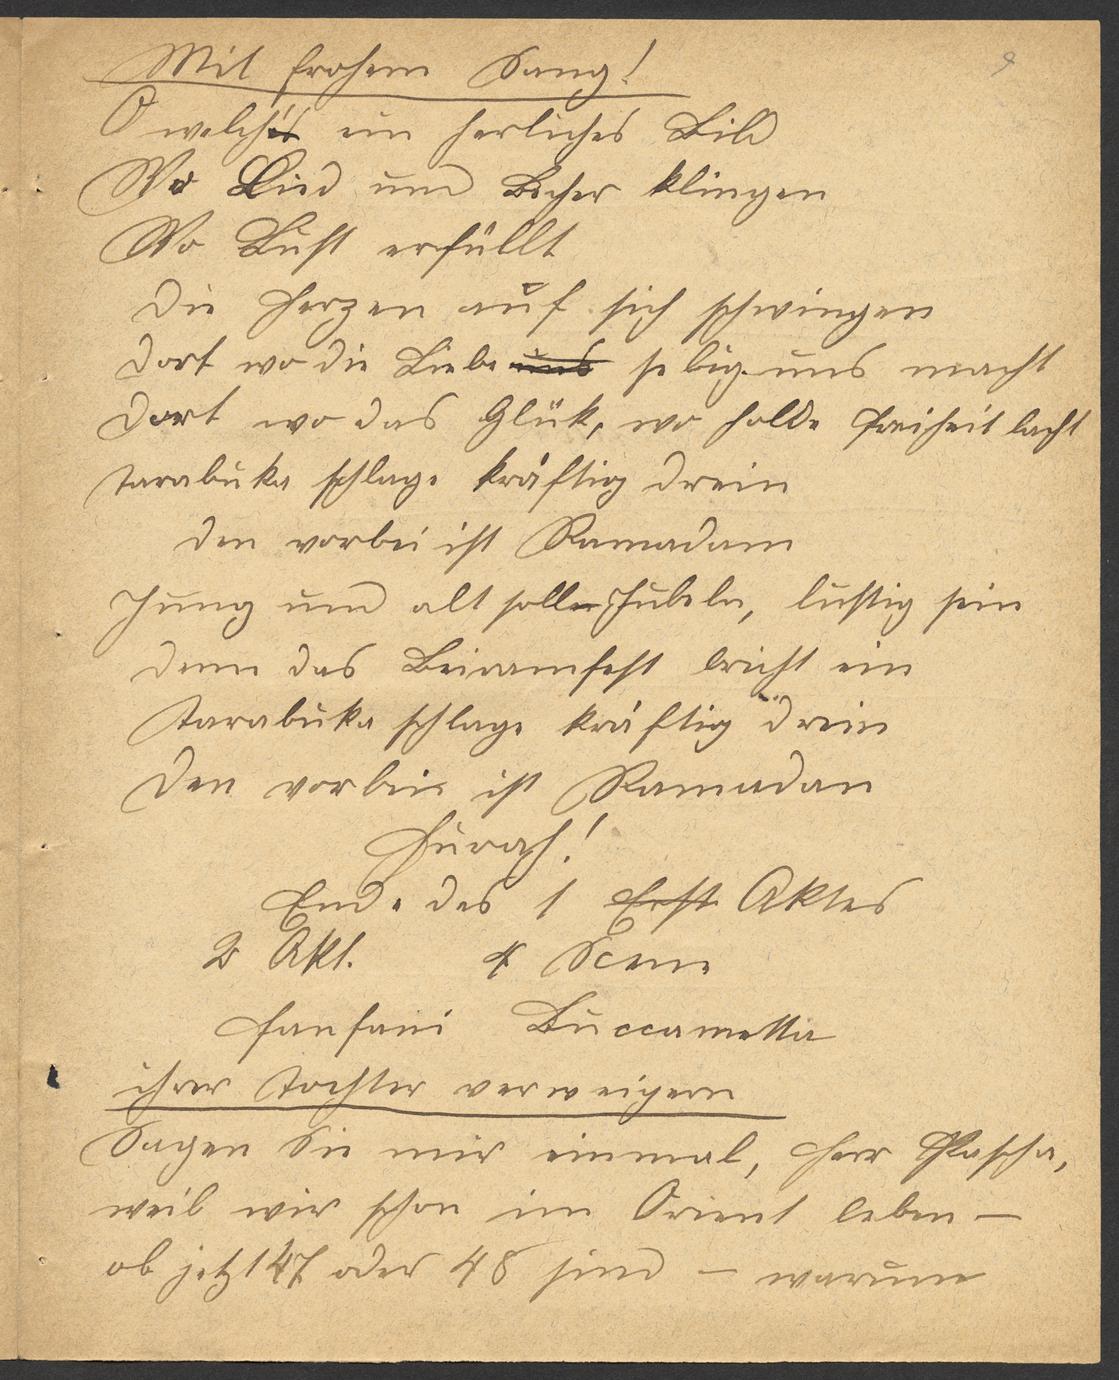 9
Mit frohem Sang!
O welch ein herliches Bild
Wo Lied und Becher klingen
Wo Lust erfüllt
Die Herzen auf sich schwingen
Dort wo die Liebe uns selig uns macht
Dort wo das Glük, wo holde Freiheit lacht
Tarabuka schlage kräftig drein
den vorbei ist Ramadam
Jung und alt soll Jubeln, lustig sein
denn das Beiramfest bricht ein
Tarabuka schlage kräftig drein
Den vorbei ist Ramadan
Hurah!
Ende des 1 Erst Aktes
2 Akt. 4 Scene
Fanfani Buccametta
ihrer Tochter verweigern
Sagen Sie mir einmal, Herr Pascha,
weil wir schon im Orient leben —
ob jetzt 47 oder 48 sind — warum